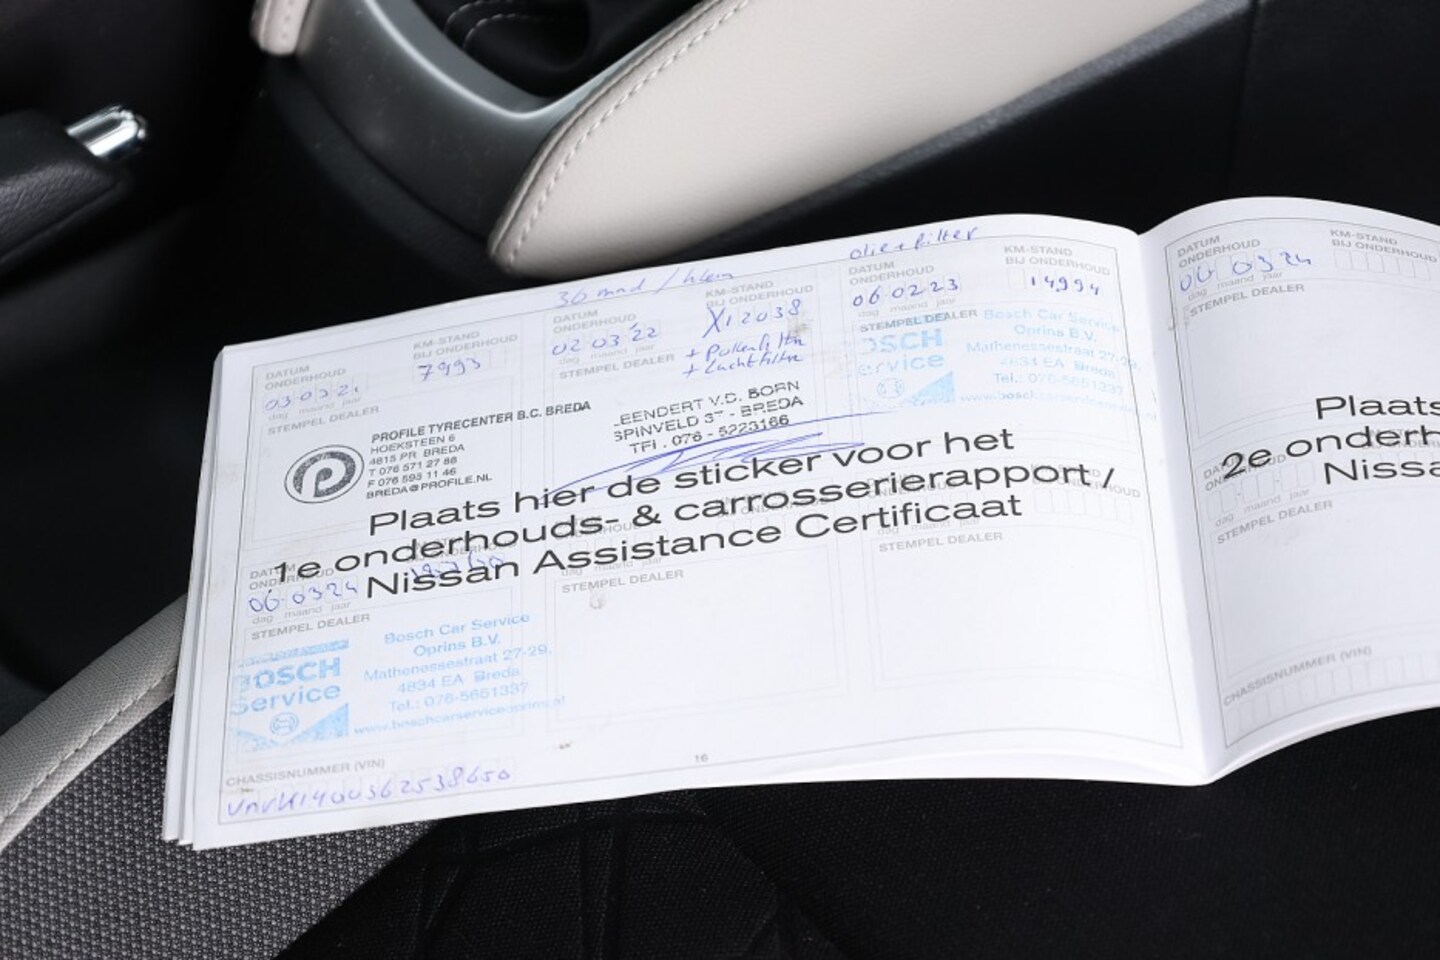 30 mnd / klein
olie + filter
DATUM ONDERHOUD
03 03 21
dag maand jaar
KM-STAND BIJ ONDERHOUD
7993
STEMPEL DEALER
PROFILE TYRECENTER B.C. BREDA
HOEKSTEEN 6
4815 PR BREDA
T 076 571 27 88
F 076 593 11 46
BREDA@PROFILE.NL
DATUM ONDERHOUD
02 03 22
dag maand jaar
KM-STAND BIJ ONDERHOUD
12038
STEMPEL DEALER
+ Pollenfiltr
+ Luchtfiltre
LEENDERT V.D. BORN
SPINVELD 37 - BREDA
TEL. 076 - 5223166
DATUM ONDERHOUD
06 02 23
dag maand jaar
KM-STAND BIJ ONDERHOUD
14994
STEMPEL DEALER
OSCH
ervice
Bosch Car Service
Oprins B.V.
Mathenessestraat 27-29,
4834 EA Breda
Tel.: 076-5651337
Plaats hier de sticker voor het
1e onderhouds- & carrosserierapport /
Nissan Assistance Certificaat
DATUM ONDERHOUD
06 03 24
dag maand jaar
STEMPEL DEALER
BOSCH
Service
Bosch Car Service
Oprins B.V.
Mathenessestraat 27-29,
4834 EA Breda
Tel.: 076-5651337
STEMPEL DEALER
STEMPEL DEALER
CHASSISNUMMER (VIN)
16
DATUM ONDERHOUD
06 03 24
dag maand jaar
KM-STAND BIJ ONDERHOUD
STEMPEL DEALER
Plaats
2e onderh
Nissa
dag maand jaar
STEMPEL DEALER
CHASSISNUMMER (VIN)